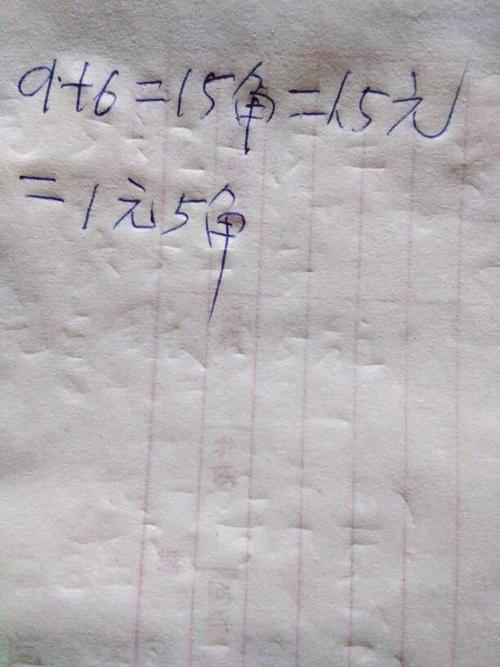 9+6=15角=1.5元
=1元5角